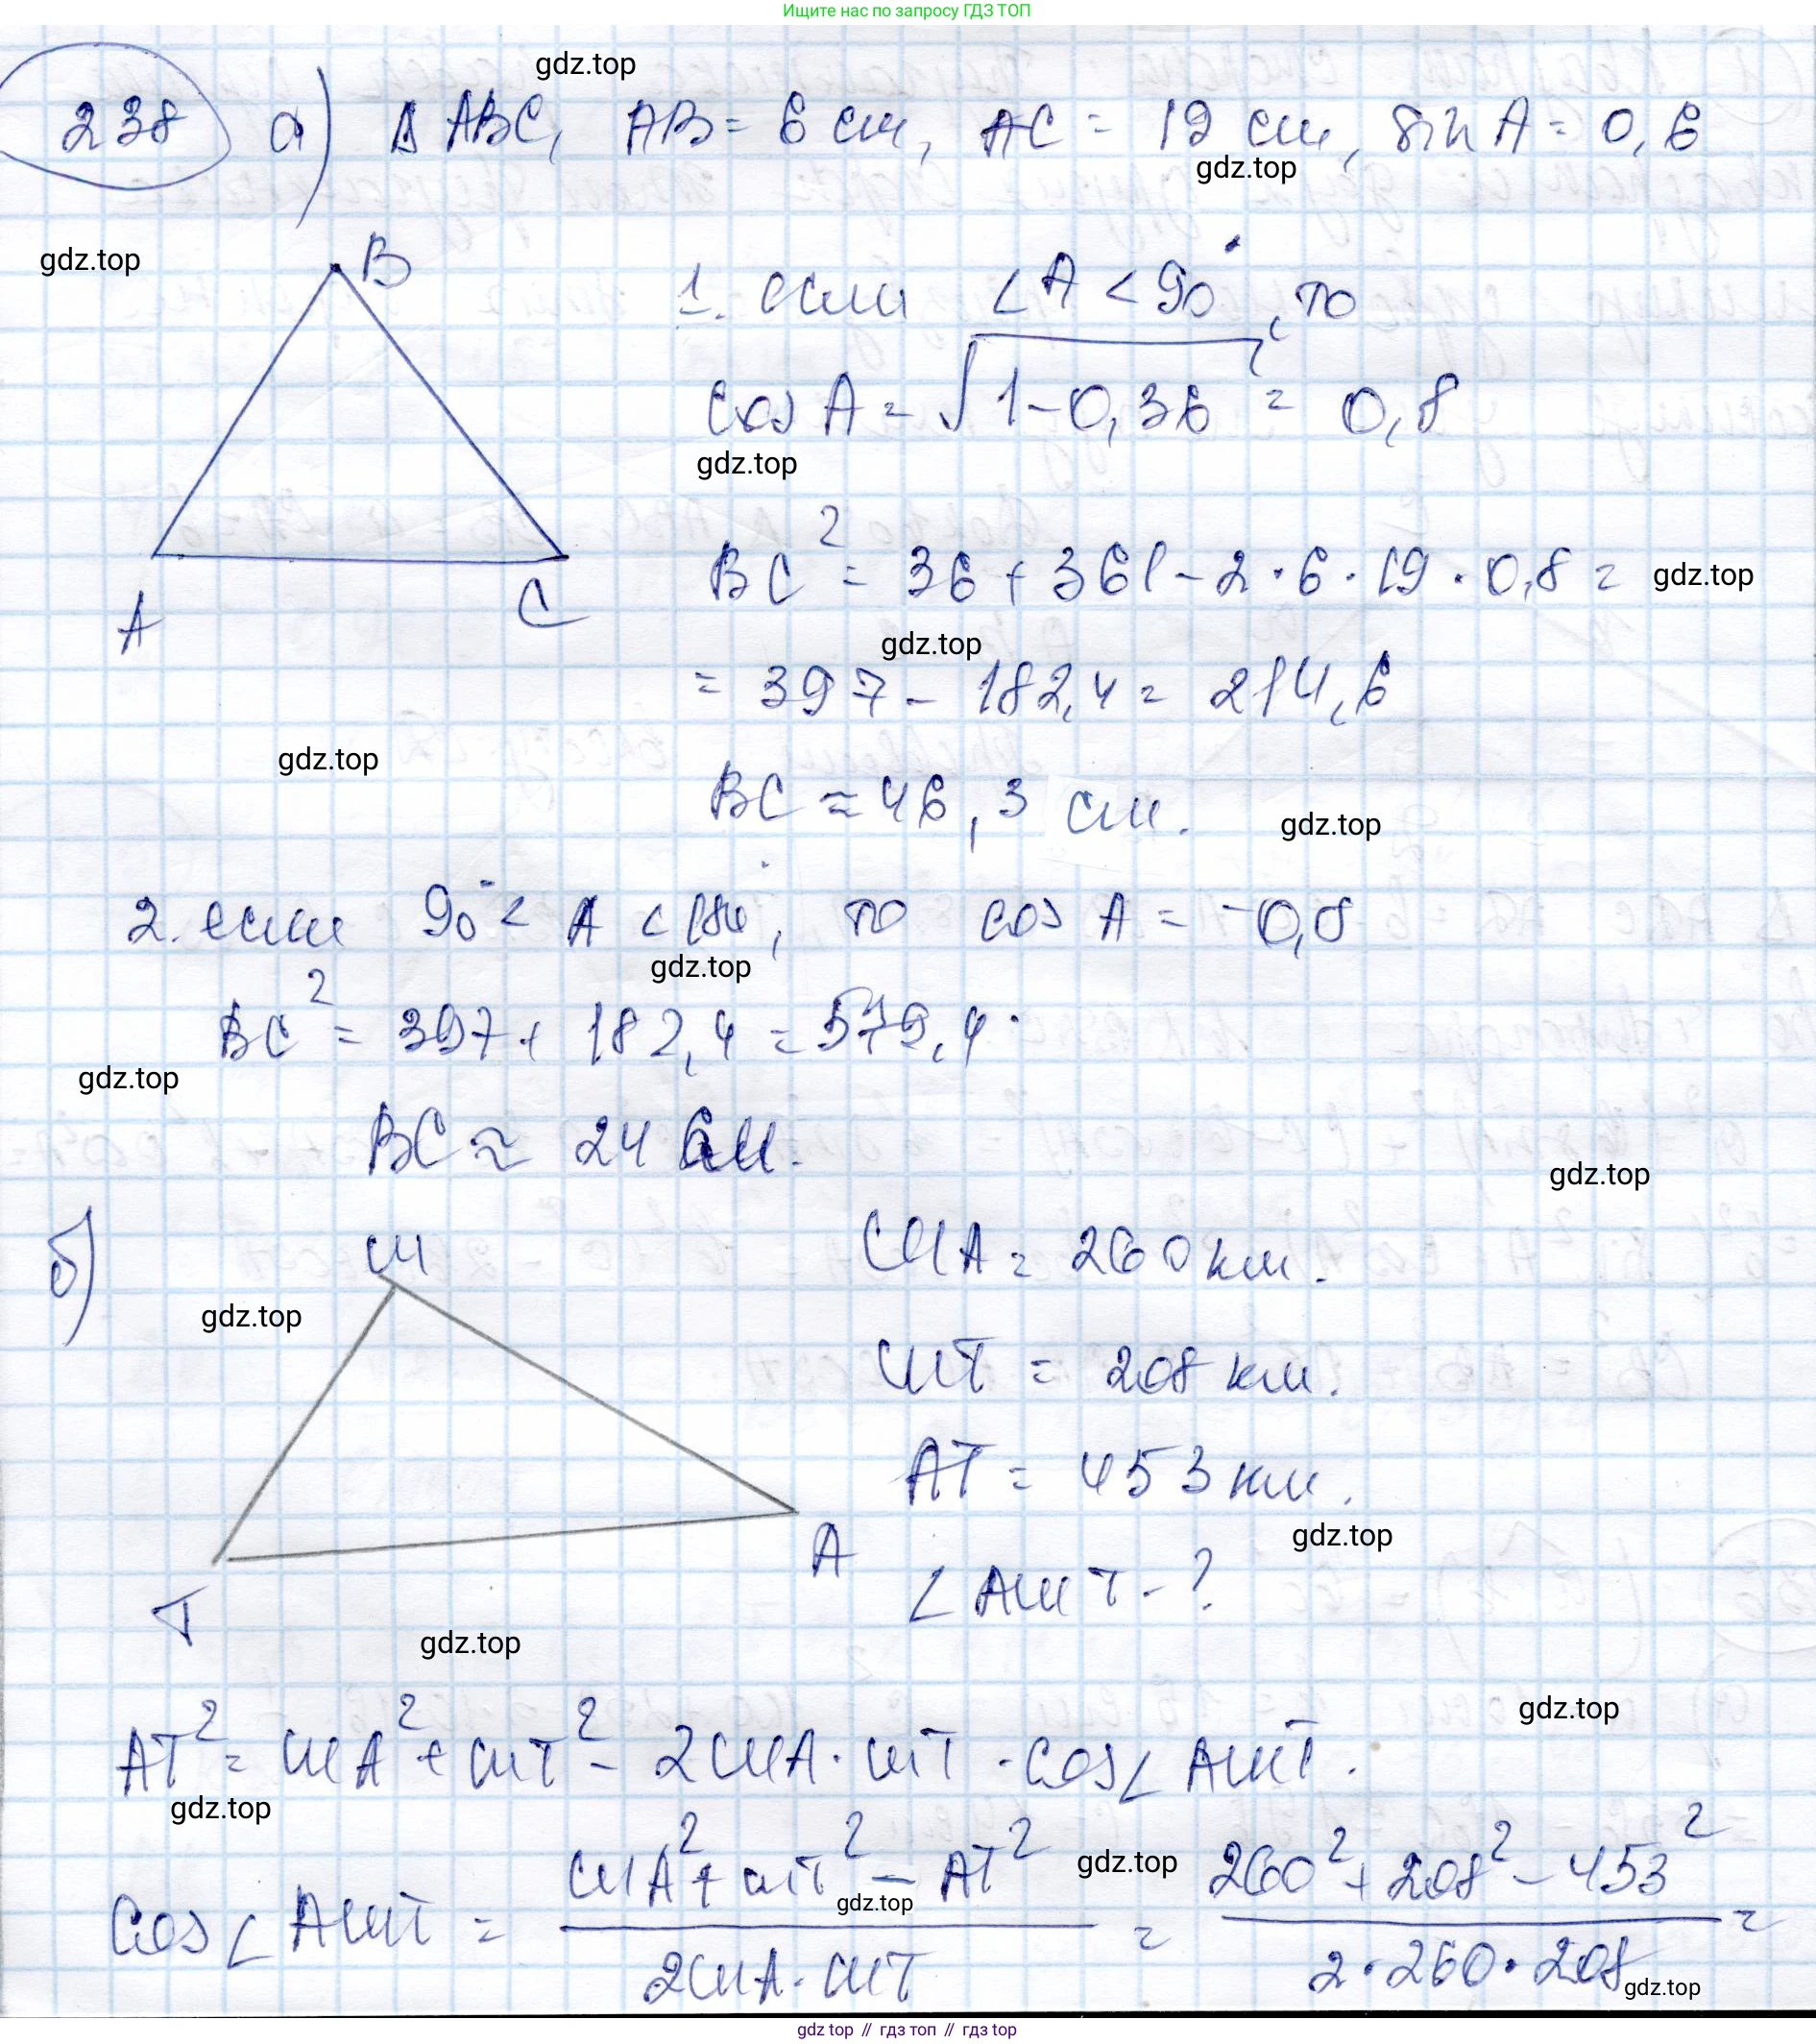 Ищите нас по запросу ГДЗ ТОП
gdz.top
238 а) Δ ABC, AB = 6 см, AC = 19 см, sin A = 0,6
gdz.top
gdz.top
B
1. если ∠A < 90°, то
cos A = √1-0,36 = 0,8
gdz.top
BC² = 36 + 361 - 2 · 6 · 19 · 0,8 =
gdz.top
A
C
gdz.top
= 397 - 182,4 = 214,6
gdz.top
BC ≈ 46,3 см.
gdz.top
2. если 90° < A < 180°, то cos A = -0,8
gdz.top
BC² = 397 + 182,4 = 579,4
gdz.top
BC ≈ 24 см.
gdz.top
б)
Ш
ША = 260 км.
gdz.top
ШТ = 208 км.
АТ = 453 км.
gdz.top
А
∠АШТ - ?
Т
gdz.top
gdz.top
АТ² = ША² + ШТ² - 2ША · ШТ · cos∠АШТ.
gdz.top
cos∠АШТ = ША² + ШТ² - АТ² / 2ША · ШТ = 260² + 208² - 453² / 2 · 260 · 208 =
gdz.top
gdz.top
gdz.top
gdz top // гдз топ // gdz top